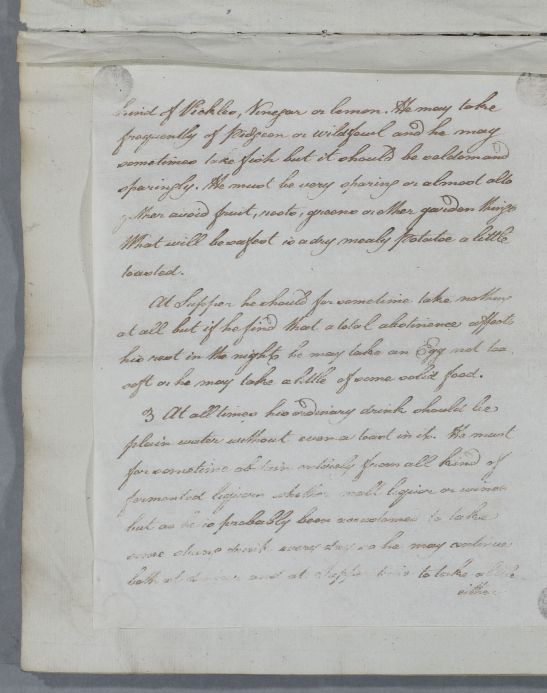 kind of Pickles, Vinegar or lemon. He may take
frequently of Pidgeon or wildfowl and he may
sometimes take fish but it should be seldom and
sparingly. He must be very sparing or almost alto
gether avoid fruit, roots, greens or other garden things
What will be safest is a dry mealy Potatoe a little
toasted.
At Supper he should for sometime take nothing
at all but if he find that a total abstinence affects
his rest in the night he may take an Egg not too
soft or he may take a little of some solid food.
3 At all times his ordinary drink should be
plain water without even a toast in it. He must
for sometime abstain entirely from all kind of
fermented liquors whether malt liquor or wines
but as he is probably been accustomed to take
some strong drink every day so he may continue
both at dinner and at Supper time to take a little
either